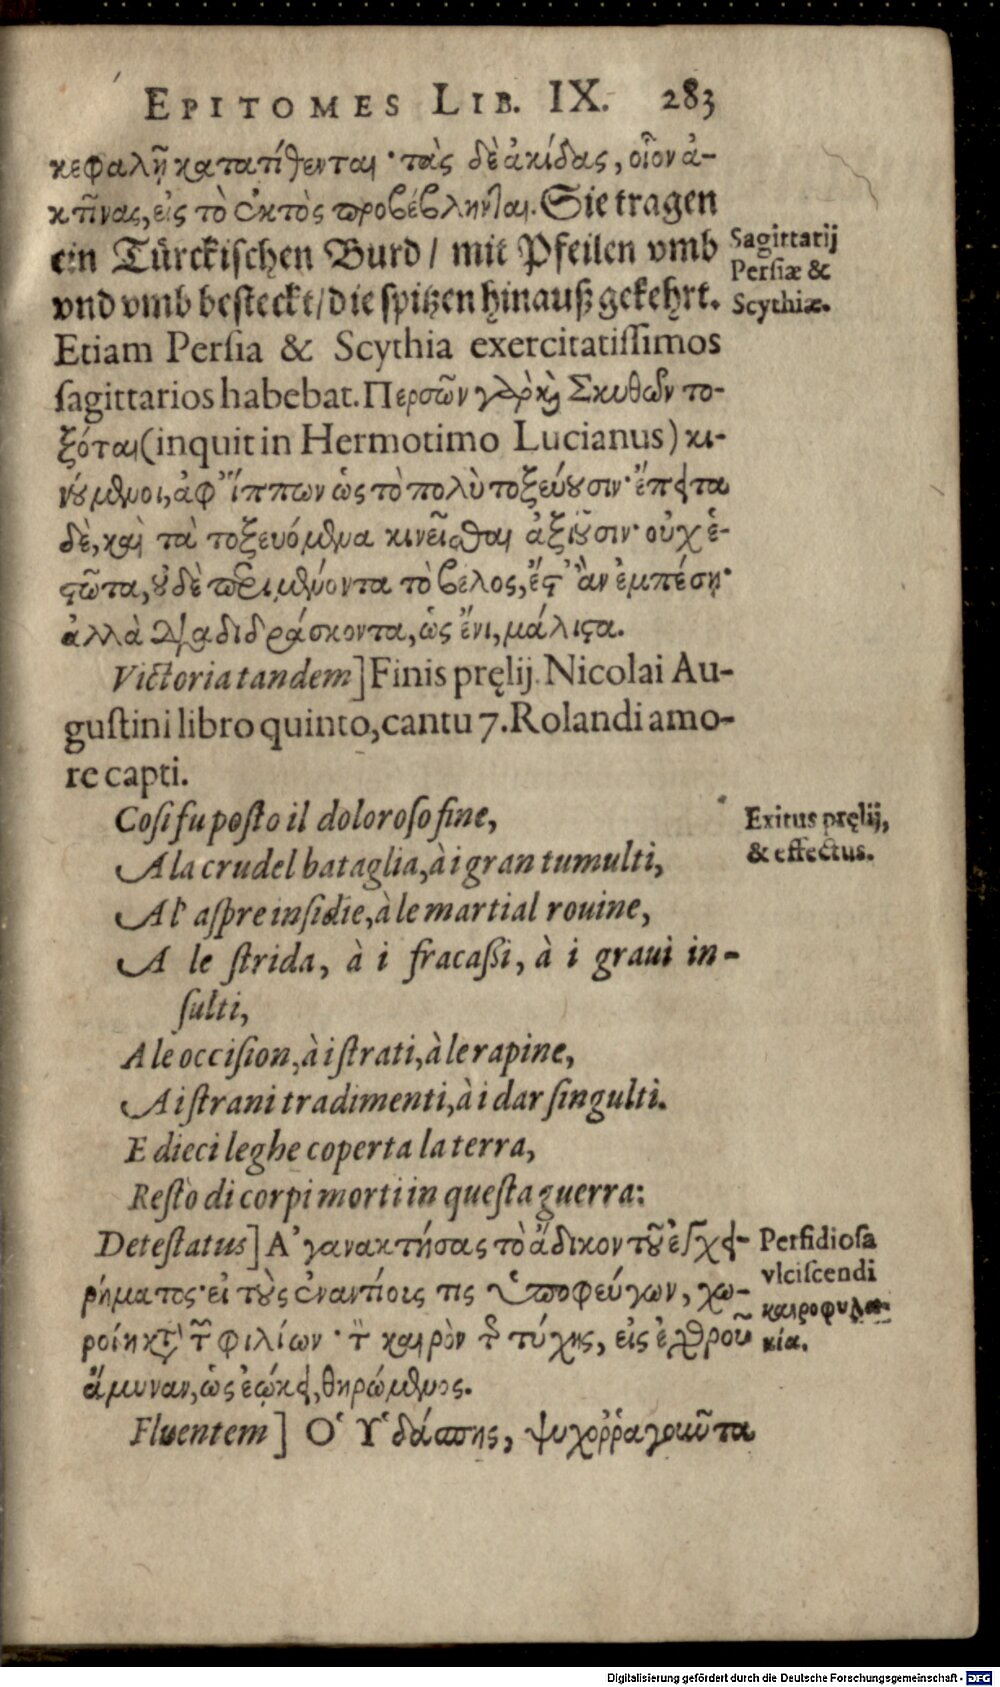 EPITOMES LIB. IX. 283
κεφαλῇ κατατίθενται· τὰς δὲ ἀκίδας, οἷον ἀ-
κτῖνας, εἰς τὸ ἐκτὸς προβέβληνται. Sie tragen
ein Türckischen Burd / mit Pfeilen vmb
vnd vmb besteckt / die spitzen hinauß gekehrt.
Sagittarij
Persiæ &
Scythiæ.
Etiam Persia & Scythia exercitatissimos
sagittarios habebat. Περσῶν γὰρ καὶ Σκυθῶν το-
ξόται (inquit in Hermotimo Lucianus) κι-
νούμενοι, ἀφ' ἵππων ὡς τὸ πολὺ τοξεύουσιν· ἔπειτα
δὲ, καὶ τὰ τοξευόμενα κινεῖσθαι ἀξιοῦσιν· οὐχ ἑ-
στῶτα, οὐδὲ περιμένοντα τὸ βέλος, ἔστ' ἂν ἐμπέσῃ·
ἀλλὰ διαδιδράσκοντα, ὡς ἔνι, μάλιστα.
Victoria tandem] Finis pręlij. Nicolai Au-
gustini libro quinto, cantu 7. Rolandi amo-
re capti.
Cosi fu posto il doloroso fine,
A la crudel bataglia, à i gran tumulti,
Al' aspre insidie, à le martial rouine,
A le strida, à i fracassi, à i graui in-
sulti,
A le occision, à i strati, à le rapine,
A i strani tradimenti, à i dar singulti.
E dieci leghe coperta la terra,
Restò di corpi morti in questa guerra:
Exitus pręlij,
& effectus.
Detestatus] Ἀγανακτήσας τὸ ἄδικον τοῦ ἐγχει-
ρήματος· εἰ τοὺς ἐναντίοις τις ὑποφεύγων, χω-
ροίη κατὰ τῶν φιλίων· τὸν καιρὸν τῆς τύχης, εἰς ἐχθροῦ
ἄμυναν, ὡς ἐῴκει, θηρώμενος.
Perfidiosa
vlciscendi
καιροφυλα-
κία.
Fluentem] Ὁ Ὑδάσπης, ψυχοῤῥαγοιῦτα